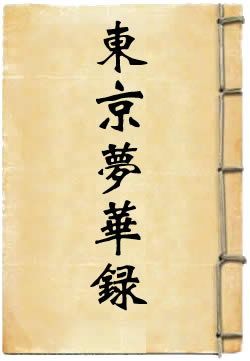 東京夢華録